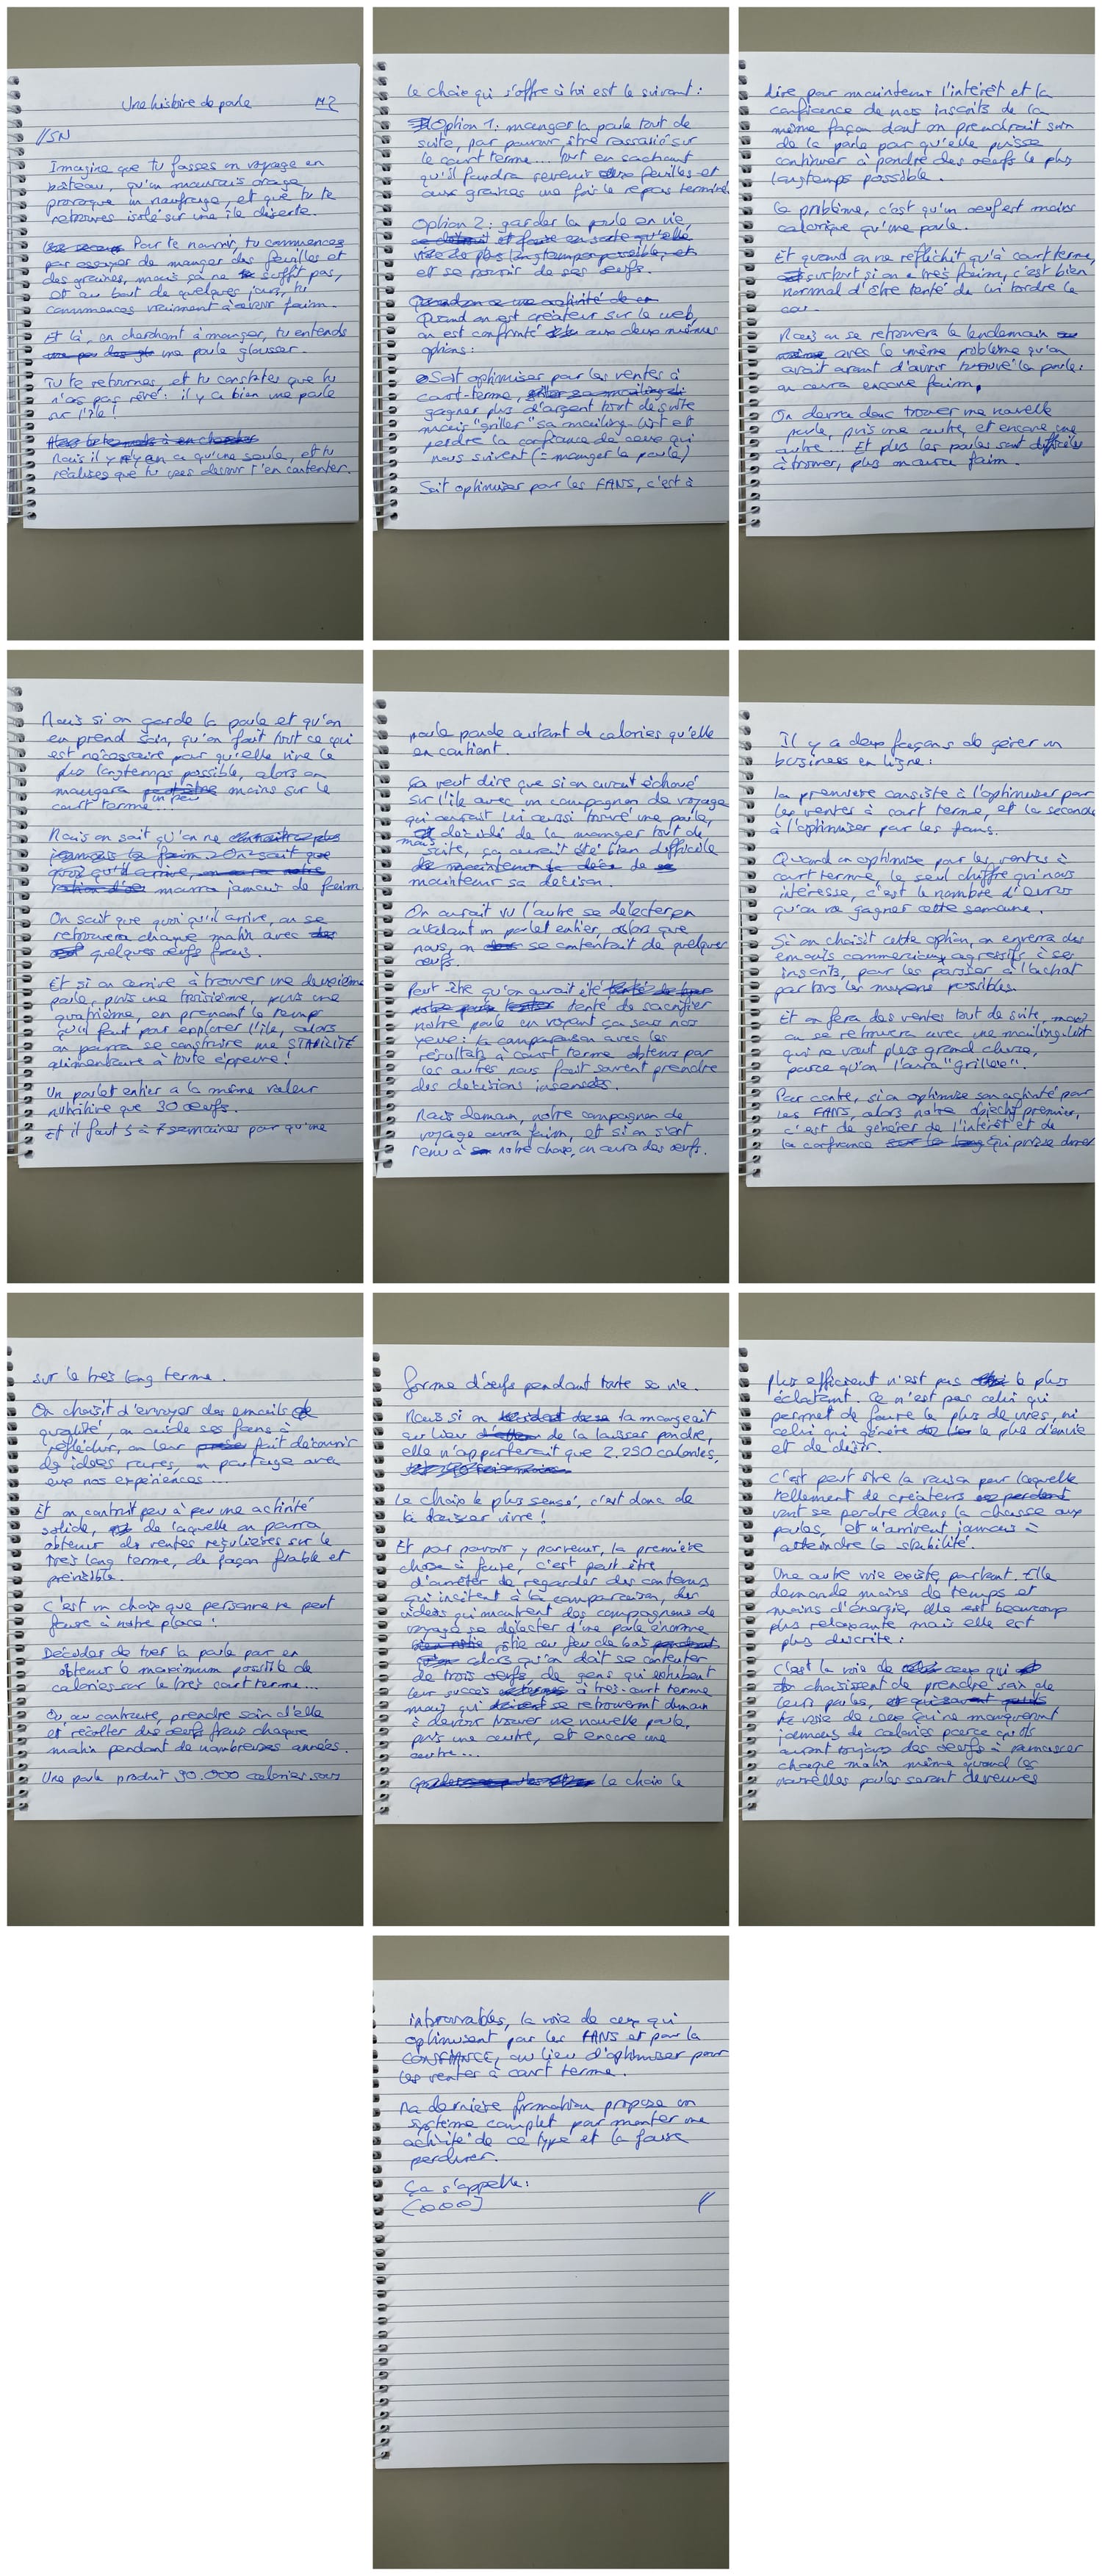 Une histoire de poule M2
//SN
Imagine que tu fasses un voyage en
bateau, qu'un mauvais orage
provoque un naufrage, et que tu te
retrouves isolé sur une île déserte.
Pour te nourrir, tu commences
par essayer de manger des feuilles et
des graines, mais ça ne suffit pas,
et au bout de quelques jours, tu
commences vraiment à avoir faim.
Et là, en cherchant à manger, tu entends
une poule glousser.
Tu te retournes, et tu constates que tu
n'as pas rêvé : il y a bien une poule
sur l'île !
Mais il n'y en a qu'une seule, et tu
réalises que tu vas devoir t'en contenter.
Le choix qui s'offre à toi est le suivant :
Option 1 : manger la poule tout de
suite, pour pouvoir être rassasié sur
le court terme... tout en sachant
qu'il faudra revenir aux feuilles et
aux graines une fois le repas terminé.
Option 2 : garder la poule en vie,
et se nourrir de ses œufs.
Quand on est créateur sur le web,
on est confronté aux deux mêmes
options :
Soit optimiser pour les ventes à
court-terme,
gagner plus d'argent tout de suite
mais "griller" sa mailing list et
perdre la confiance de ceux qui
nous suivent (= manger la poule)
Soit optimiser pour les FANS, c'est à
dire pour maintenir l'intérêt et la
confiance de nos inscrits de la
même façon dont on prendrait soin
de la poule pour qu'elle puisse
continuer à pondre des œufs le plus
longtemps possible.
Le problème, c'est qu'un œuf est moins
calorique qu'une poule.
Et quand on ne réfléchit qu'à court terme,
surtout si on a très faim, c'est bien
normal d'être tenté de lui tordre le
cou.
Mais on se retrouvera le lendemain
avec le même problème qu'on
avait avant d'avoir trouvé la poule :
on aura encore faim.
On devra donc trouver une nouvelle
poule, puis une autre, et encore une
autre... Et plus les poules sont difficiles
à trouver, plus on aura faim.
Mais si on garde la poule et qu'on
en prend soin, qu'on fait tout ce qui
est nécessaire pour qu'elle vive le
plus longtemps possible, alors on
mangera un peu moins sur le
court terme...
Mais on sait qu'on ne
mourra jamais de faim
On sait que quoi qu'il arrive, on se
retrouvera chaque matin avec
quelques œufs frais.
Et si on arrive à trouver une deuxième
poule, puis une troisième, puis une
quatrième, en prenant le temps
qu'il faut pour explorer l'île, alors
on pourra se construire une STABILITÉ
alimentaire à toute épreuve !
Un poulet entier a la même valeur
nutritive que 30 œufs.
Et il faut 5 à 7 semaines pour qu'une
poule ponde autant de calories qu'elle
en contient.
Ça veut dire que si on avait échoué
sur l'île avec un compagnon de voyage
qui aurait lui aussi trouvé une poule,
mais décidé de la manger tout de
suite, ça aurait été bien difficile
de
maintenir sa décision.
On aurait vu l'autre se délecter en
avalant un poulet entier, alors que
nous, on se contentait de quelques
œufs.
Peut-être qu'on aurait été
tenté de sacrifier
notre poule en voyant ça sous nos
yeux : la comparaison avec les
résultats à court terme obtenus par
les autres nous fait souvent prendre
des décisions insensées.
Mais demain, notre compagnon de
voyage aura faim, et si on s'est
tenu à notre choix, on aura des œufs.
Il y a deux façons de gérer un
business en ligne :
la première consiste à l'optimiser pour
les ventes à court terme, et la seconde
à l'optimiser pour les fans.
Quand on optimise pour les ventes à
court terme, le seul chiffre qui nous
intéresse, c'est le nombre d'euros
qu'on va gagner cette semaine.
Si on choisit cette option, on enverra des
emails commerciaux agressifs à ses
inscrits, pour les pousser à l'achat
par tous les moyens possibles.
Et on fera des ventes tout de suite, mais
on se retrouvera avec une mailing list
qui ne vaut plus grand chose,
parce qu'on l'aura "grillée".
Par contre, si on optimise son activité pour
les FANS, alors notre objectif premier,
c'est de générer de l'intérêt et de
la confiance qui puisse durer
sur le très long terme.
On choisit d'envoyer des emails de
qualité, on aide ses fans à
réfléchir, on leur fait découvrir
des idées rares, on partage avec
eux nos expériences...
Et on construit peu à peu une activité
solide, de laquelle on pourra
obtenir des ventes régulières sur le
très long terme, de façon fiable et
prévisible.
C'est un choix que personne ne peut
faire à notre place :
Décider de tuer la poule pour en
obtenir le maximum possible de
calories sur le très court terme...
Ou au contraire, prendre soin d'elle
et récolter des œufs frais chaque
matin pendant de nombreuses années.
Une poule produit 90.000 calories sous
forme d'œufs pendant toute sa vie.
Mais si on la mangeait
au lieu de la laisser pondre,
elle n'apporterait que 2.250 calories,
Le choix le plus sensé, c'est donc de
la laisser vivre !
Et pour pouvoir y parvenir, la première
chose à faire, c'est peut être
d'arrêter de regarder des contenus
qui incitent à la comparaison, des
vidéos qui montrent des compagnons de
voyage se délecter d'une poule énorme
rôtie au feu de bois
alors qu'on doit se contenter
de trois œufs, de gens qui exhibent
leur succès à très-court terme
mais qui se retrouveront demain
à devoir trouver une nouvelle poule,
puis une autre, et encore une
autre...
Le choix le
plus efficient n'est pas le plus
éclatant. Ce n'est pas celui qui
permet de faire le plus de vues, ni
celui qui génère le plus d'envie
et de désir.
C'est peut être la raison pour laquelle
tellement de créateurs
vont se perdre dans la chasse aux
poules, et n'arrivent jamais à
atteindre la stabilité.
Une autre voie existe pourtant. Elle
demande moins de temps et
moins d'énergie, elle est beaucoup
plus relaxante mais elle est
plus discrète :
C'est la voie de ceux qui
choisissent de prendre soin de
leurs poules,
la voie de ceux qui ne manqueront
jamais de calories parce qu'ils
auront toujours des œufs à ramasser
chaque matin même quand les
nouvelles poules seront devenues
introuvables, la voie de ceux qui
optimisent pour les FANS et pour la
CONFIANCE, au lieu d'optimiser pour
les ventes à court terme.
Ma dernière formation propose un
système complet pour monter une
activité de ce type et la faire
perdurer.
Ça s'appelle :
(ooo)